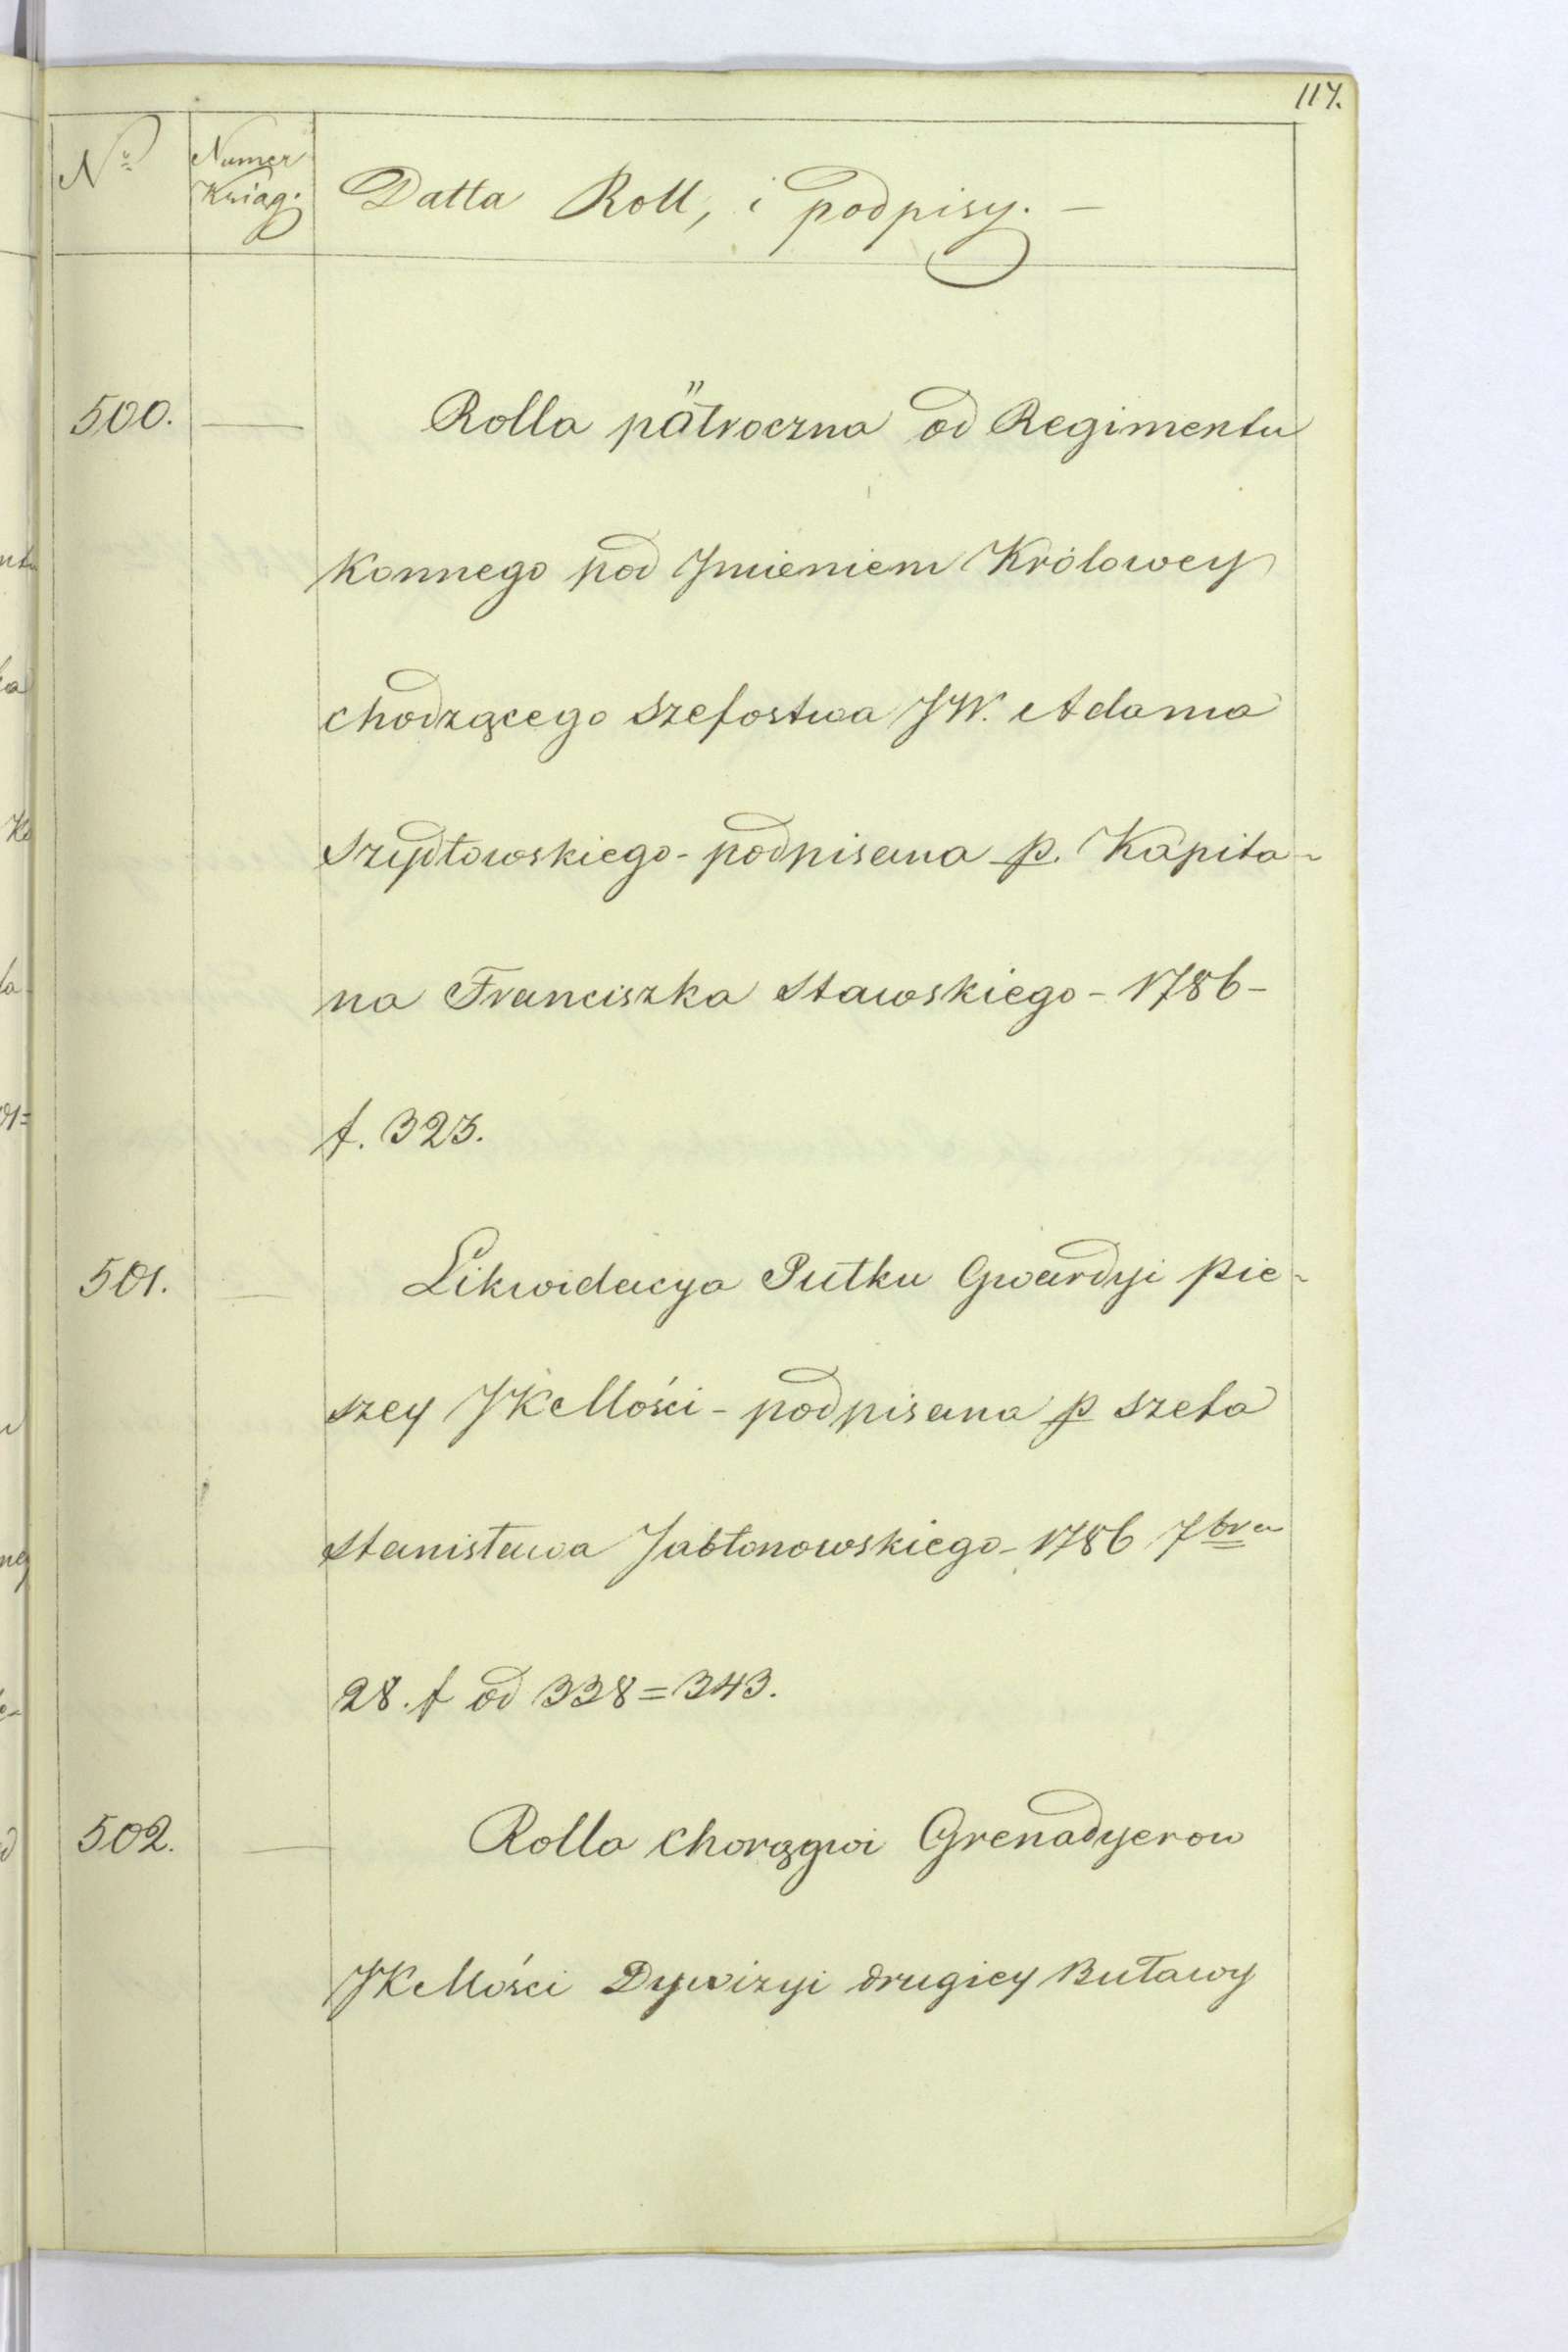 117.
No Numer Ksiąg. Datta Roll, i podpisy. —
500. — Rolla pół̈roczna od Regimentu
Konnego pod Jmieniem Królowey
chodzącego Szefostwa JW. Adama
Szydłowskiego - podpisana p. Kapita-
na Franciszka Stawskiego - 1786 -
f. 323.
501. — Likwidacya Pułku Gwardyi pie-
szey JKMości - podpisana p Szefa
Stanisława Jabłonowskiego - 1786 7bra
28. f od 338 = 343.
502. — Rolla Chorągwi Grenadyerow
JKMości Dywizyi drugiey Buławy